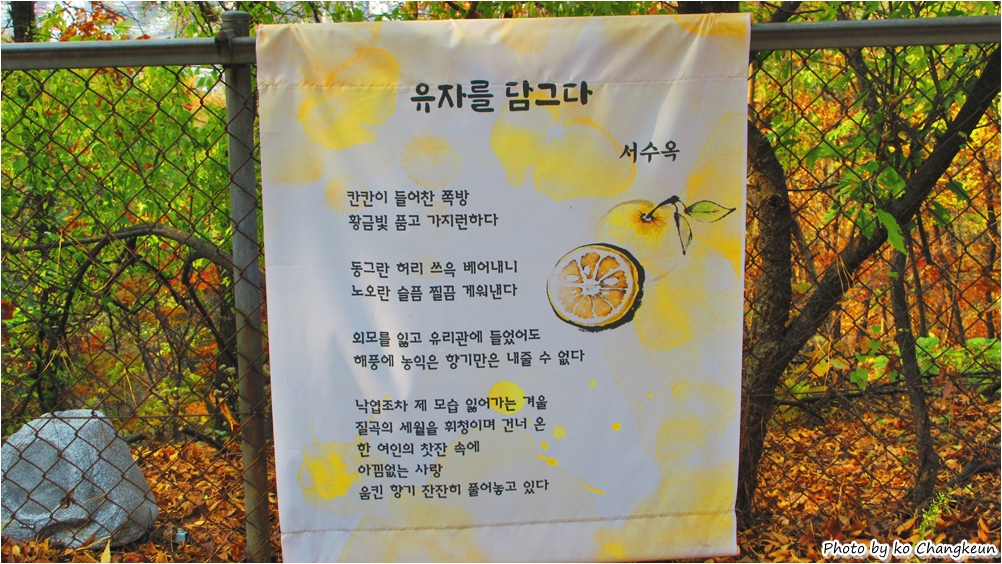 유자를 담그다
서수옥
칸칸이 들어찬 쪽방
황금빛 품고 가지런하다
동그란 허리 쓰윽 베어내니
노오란 슬픔 찔끔 게워낸다
외모를 잃고 유리관에 들었어도
해풍에 농익은 향기만은 내줄 수 없다
낙엽조차 제 모습 잃어가는 겨울
질곡의 세월을 휘청이며 건너 온
한 여인의 찻잔 속에
아낌없는 사랑
움킨 향기 잔잔히 풀어놓고 있다
Photo by ko Changkeun